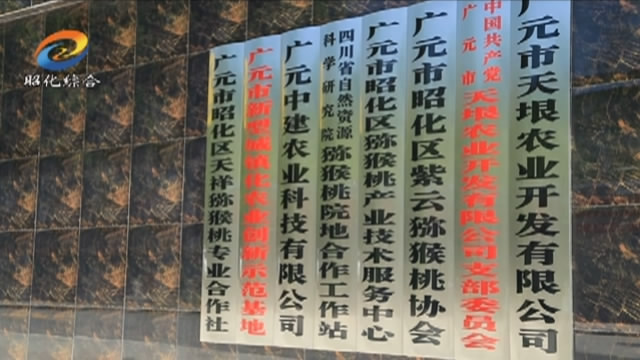 昭化综合
广元市天垠农业开发有限公司
中国共产党
广元市
天垠农业开发有限公司支部委员会
广元市昭化区紫云猕猴桃协会
广元市昭化区猕猴桃产业技术服务中心
四川省自然资源
科学研究院
猕猴桃院地合作工作站
广元中建农业科技有限公司
广元市新型城镇化农业创新示范基地
广元市昭化区天祥猕猴桃专业合作社